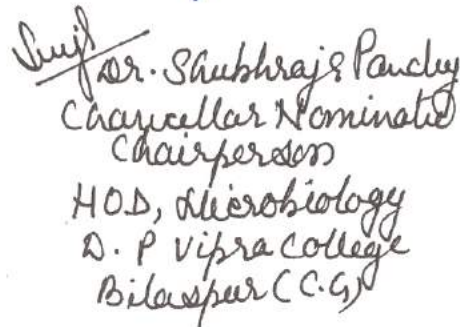 Dr. Shubhra S Pandey
Chancellor Nominated
Chairperson
HOD, Microbiology
D. P Vipra College
Bilaspur (C.G)